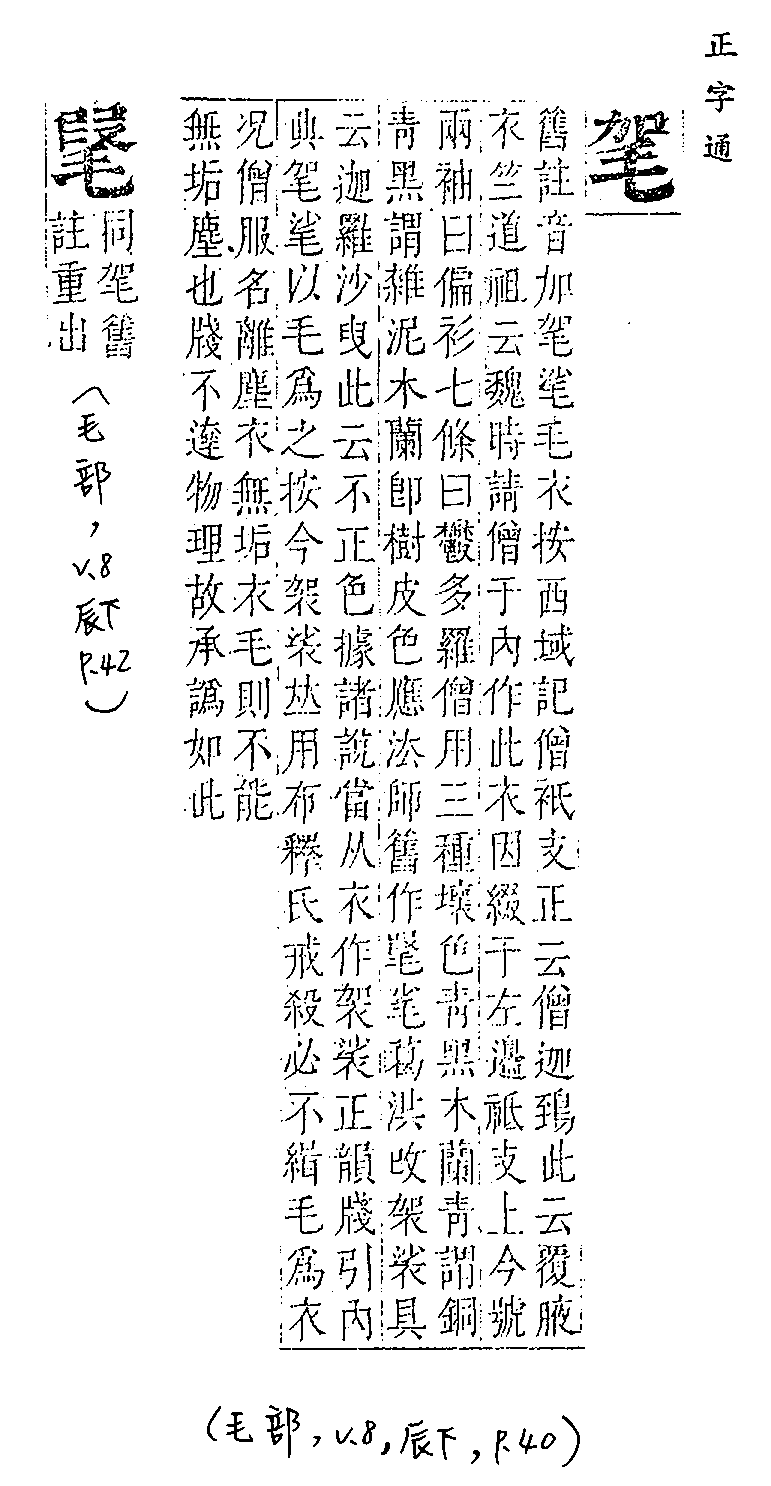 正字通
毠
舊註音加毠㲚毛衣按西域記僧祇支正云僧迦鵄此云覆腋
衣竺道祖云魏時請僧于內作此衣因綴于左邊祗支上今號
兩袖曰偏衫七條曰鬱多羅僧用三種壞色青黑木蘭青謂銅
青黑謂雜泥木蘭卽樹皮色應法師舊作㲚葛洪改袈裟具
云迦羅沙曳此云不正色據諸說當从衣作袈裟正韻牋引內
典毠㲚以毛爲之按今袈裟𠀤用布釋氏戒殺必不緝毛爲衣
况僧服名離塵衣無垢衣毛則不能
無垢塵也牋不達物理故承譌如此
同毠舊
註重出
(毛部, v.8 辰下 p.42)
(毛部, v.8, 辰下, p.40)